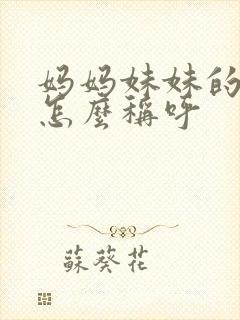 妈妈妹妹的
怎麼稱呼
蘇葵花